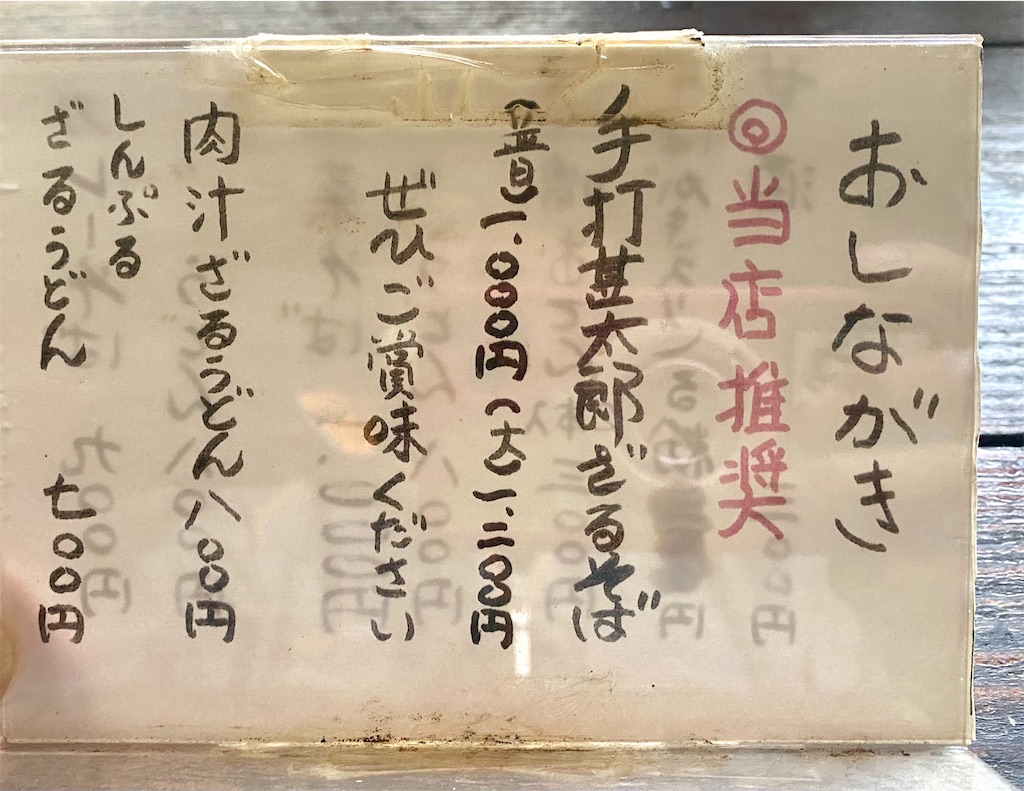 おしながき
◎当店推奨
手打甚太郎ざるそば
(普)一、〇〇〇円(大)一、二〇〇円
ぜひご賞味ください
肉汁ざるうどん八〇〇円
しんぷる
ざるうどん 七〇〇円